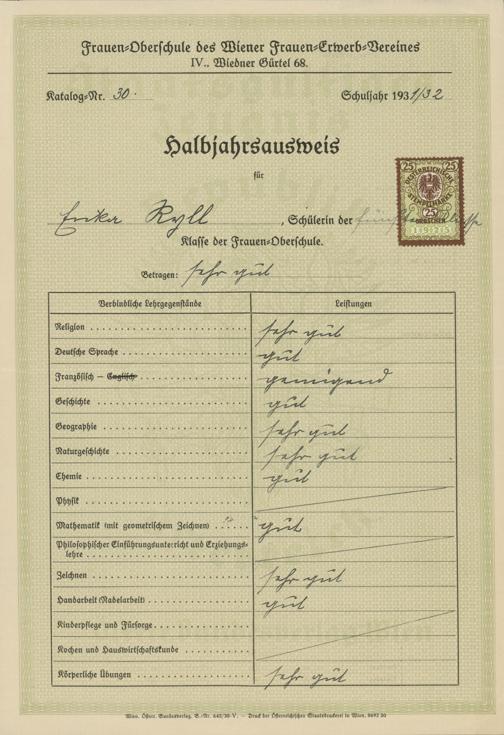 Frauen-Oberschule des Wiener Frauen-Erwerb-Vereines
IV., Wiedner Gürtel 68.
Katalog-Nr. 30. Schuljahr 1931/32
Halbjahrsausweis
für
Erika Ryll, Schülerin der fünften Klasse
Klasse der Frauen-Oberschule.
25 25
ÖSTERREICHISCHE
STEMPELMARKE
25
GROSCHEN
1925
Betragen: sehr gut
Verbindliche Lehrgegenstände Leistungen
Religion sehr gut
Deutsche Sprache gut
Französisch — Englisch genügend
Geschichte gut
Geographie sehr gut
Naturgeschichte sehr gut
Chemie gut
Physik
Mathematik (mit geometrischem Zeichnen) gut
Philosophischer Einführungsunterricht und Erziehungs-
lehre
Zeichnen sehr gut
Handarbeit (Nadelarbeit) gut
Kinderpflege und Fürsorge
Kochen und Hauswirtschaftskunde
Körperliche Übungen sehr gut
Druck der Österreichischen Staatsdruckerei in Wien.